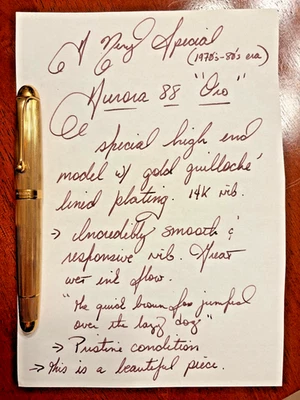 A Very Special
(1970's-80's era)
Aurora 88 "Oro"
special high end
model w/ gold guilloche'
lined plating. 14K nib.
→ Incredibly smooth &
responsive nib. Great
wet ink flow.
"The quick brown fox jumped
over the lazy dog"
→ Pristine condition
→ This is a beautiful piece.